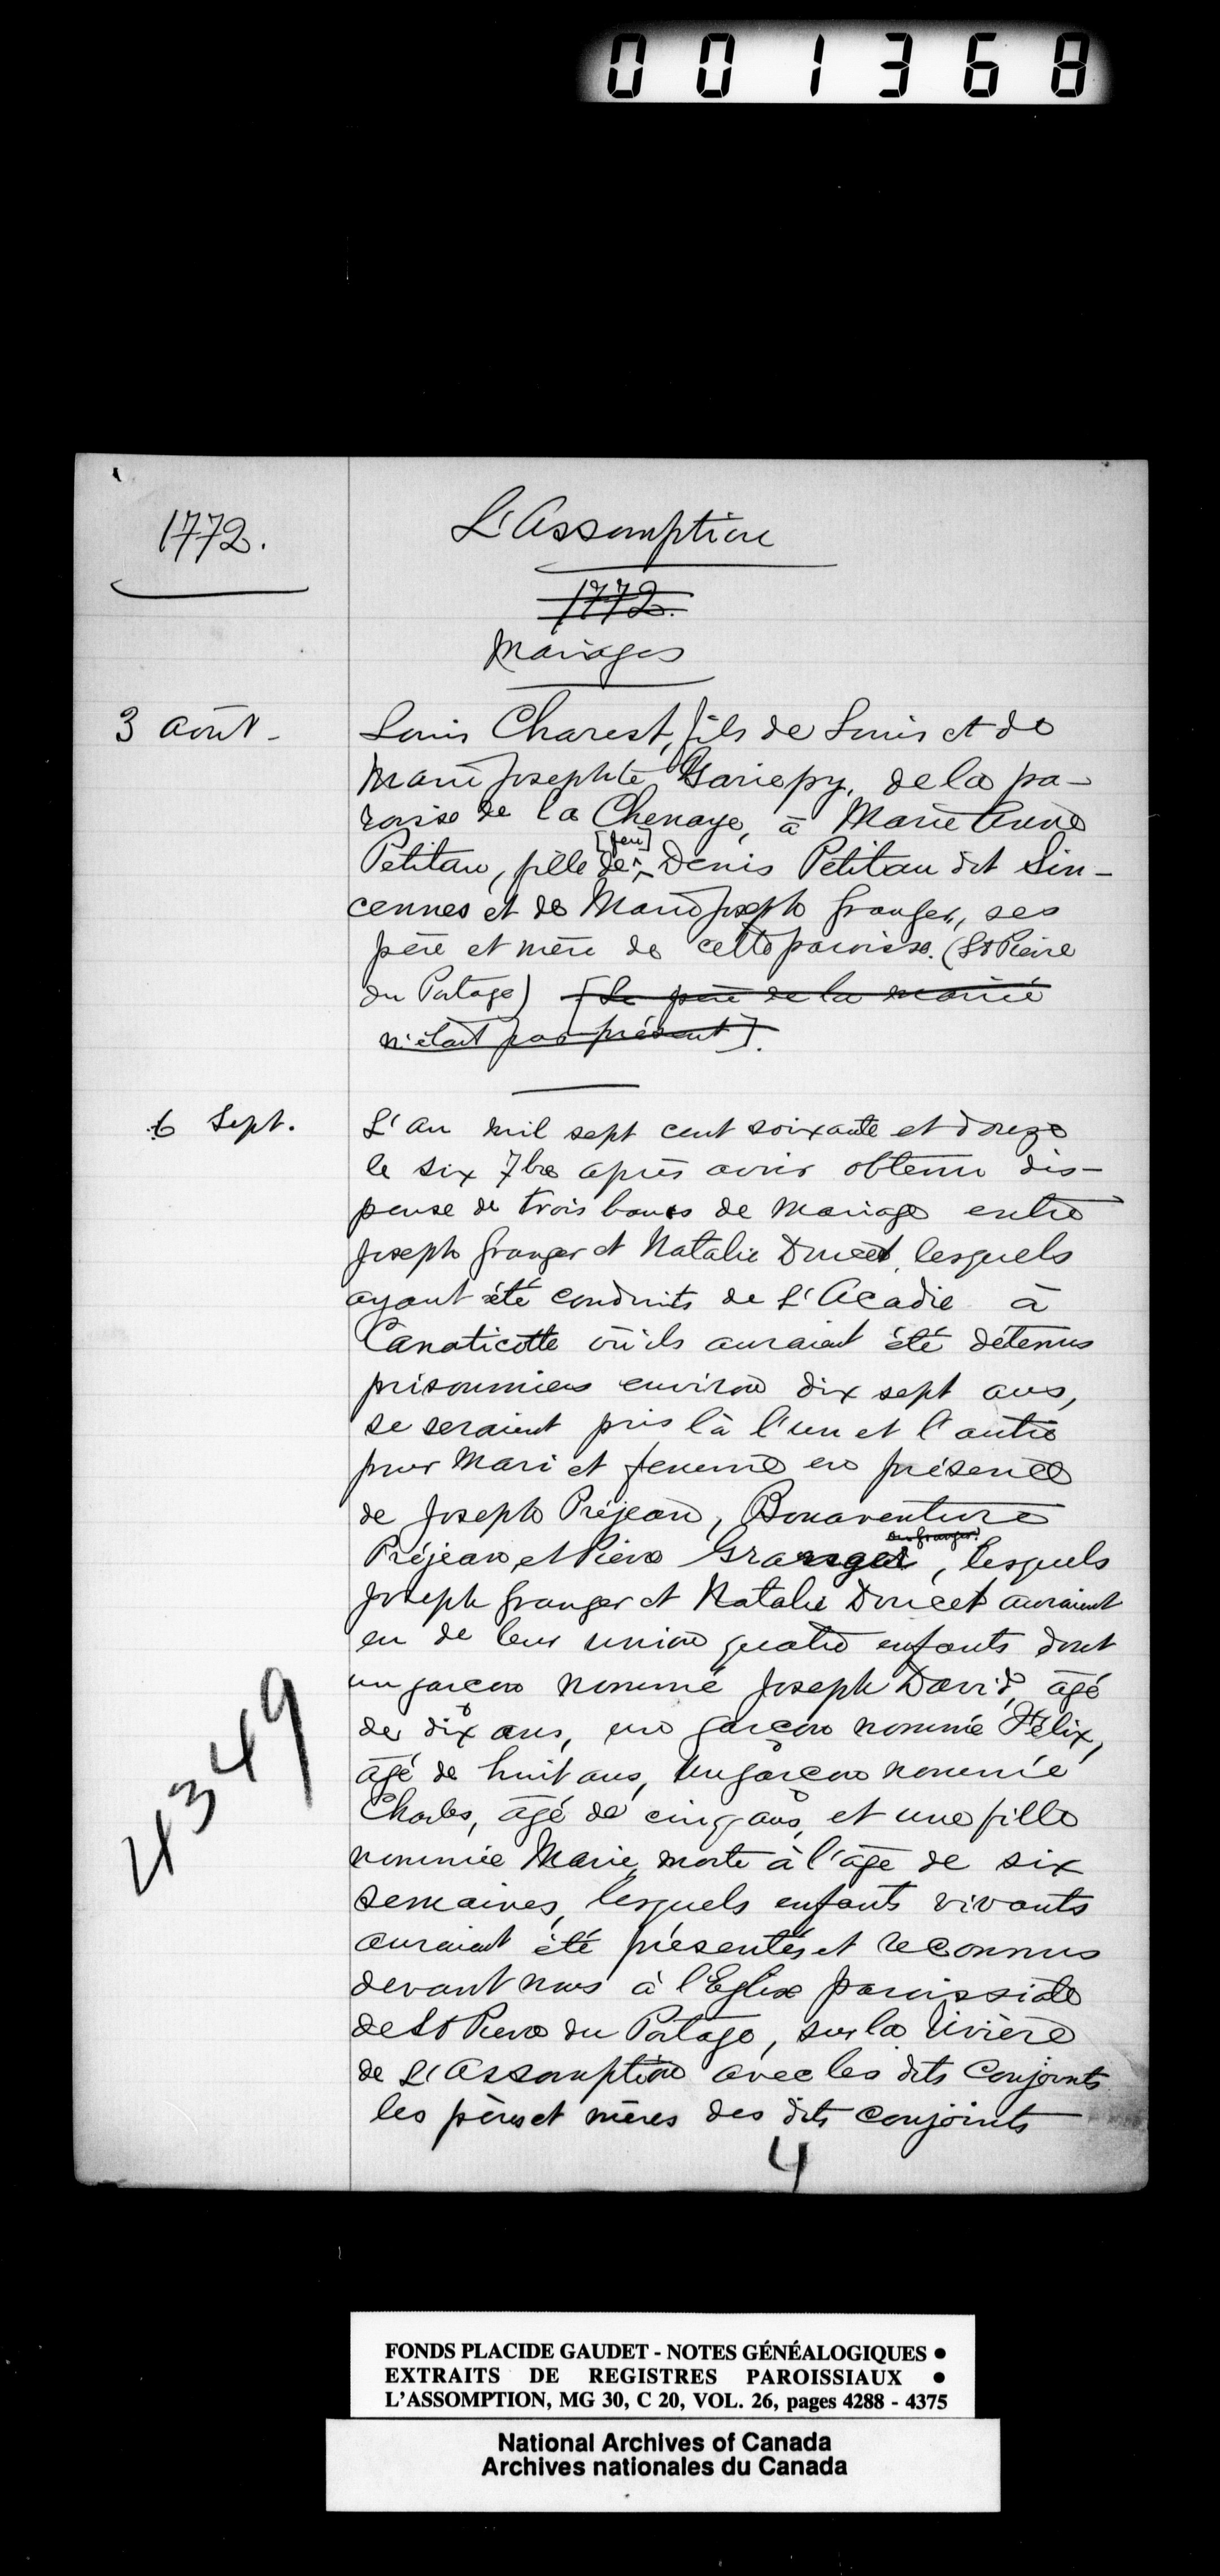 001368
1772.
L'Assomption
1772.
Mariages
3 août -
Louis Charest, fils de Louis et de
Marie Josephte Gariepy, de la pa-
roisse de la Chenaye, à Marie Anne
[feu]
Petitau, fille de ^ Denis Petitau dit Sin-
cennes et de Marie Joseph Granger, ses
père et mère de cette paroisse. (St Pierre
du Portage) [Le père de la mariée
n'était pas présent].
6 Sept.
L'an mil sept cent soixante et douze
le six 7bre après avoir obtenu dis-
pense de trois bancs de mariage entre
Joseph Granger et Natalie Doucet, lesquels
ayant été conduits de L'Acadie à
Canaticotte où ils auraient été détenus
prisonniers environ dix sept ans,
se seraient pris là l'un et l'autre
pour mari et femme en présence
de Joseph Préjean, Bonaventure
ou Granger?
Préjean, et Pierre Granger, lesquels
Joseph Granger et Natalie Doucet auraient
eu de leur union quatre enfants dont
un garçon nommé Joseph David, âgé
de dix ans, un garçon nommé Félix,
âgé de huit ans, un garçon nommé
Charles, âgé de cinq ans, et une fille
nommée Marie, morte à l'âge de six
semaines, lesquels enfants vivants
auraient été présentés et reconnus
devant nous à l'Eglise paroissiale
de St Pierre du Portage, sur la rivière
de L'Assomption avec les dits conjoints
les pères et mères des dits conjoints
4349
4
FONDS PLACIDE GAUDET - NOTES GÉNÉALOGIQUES •
EXTRAITS DE REGISTRES PAROISSIAUX •
L'ASSOMPTION, MG 30, C 20, VOL. 26, pages 4288 - 4375
National Archives of Canada
Archives nationales du Canada